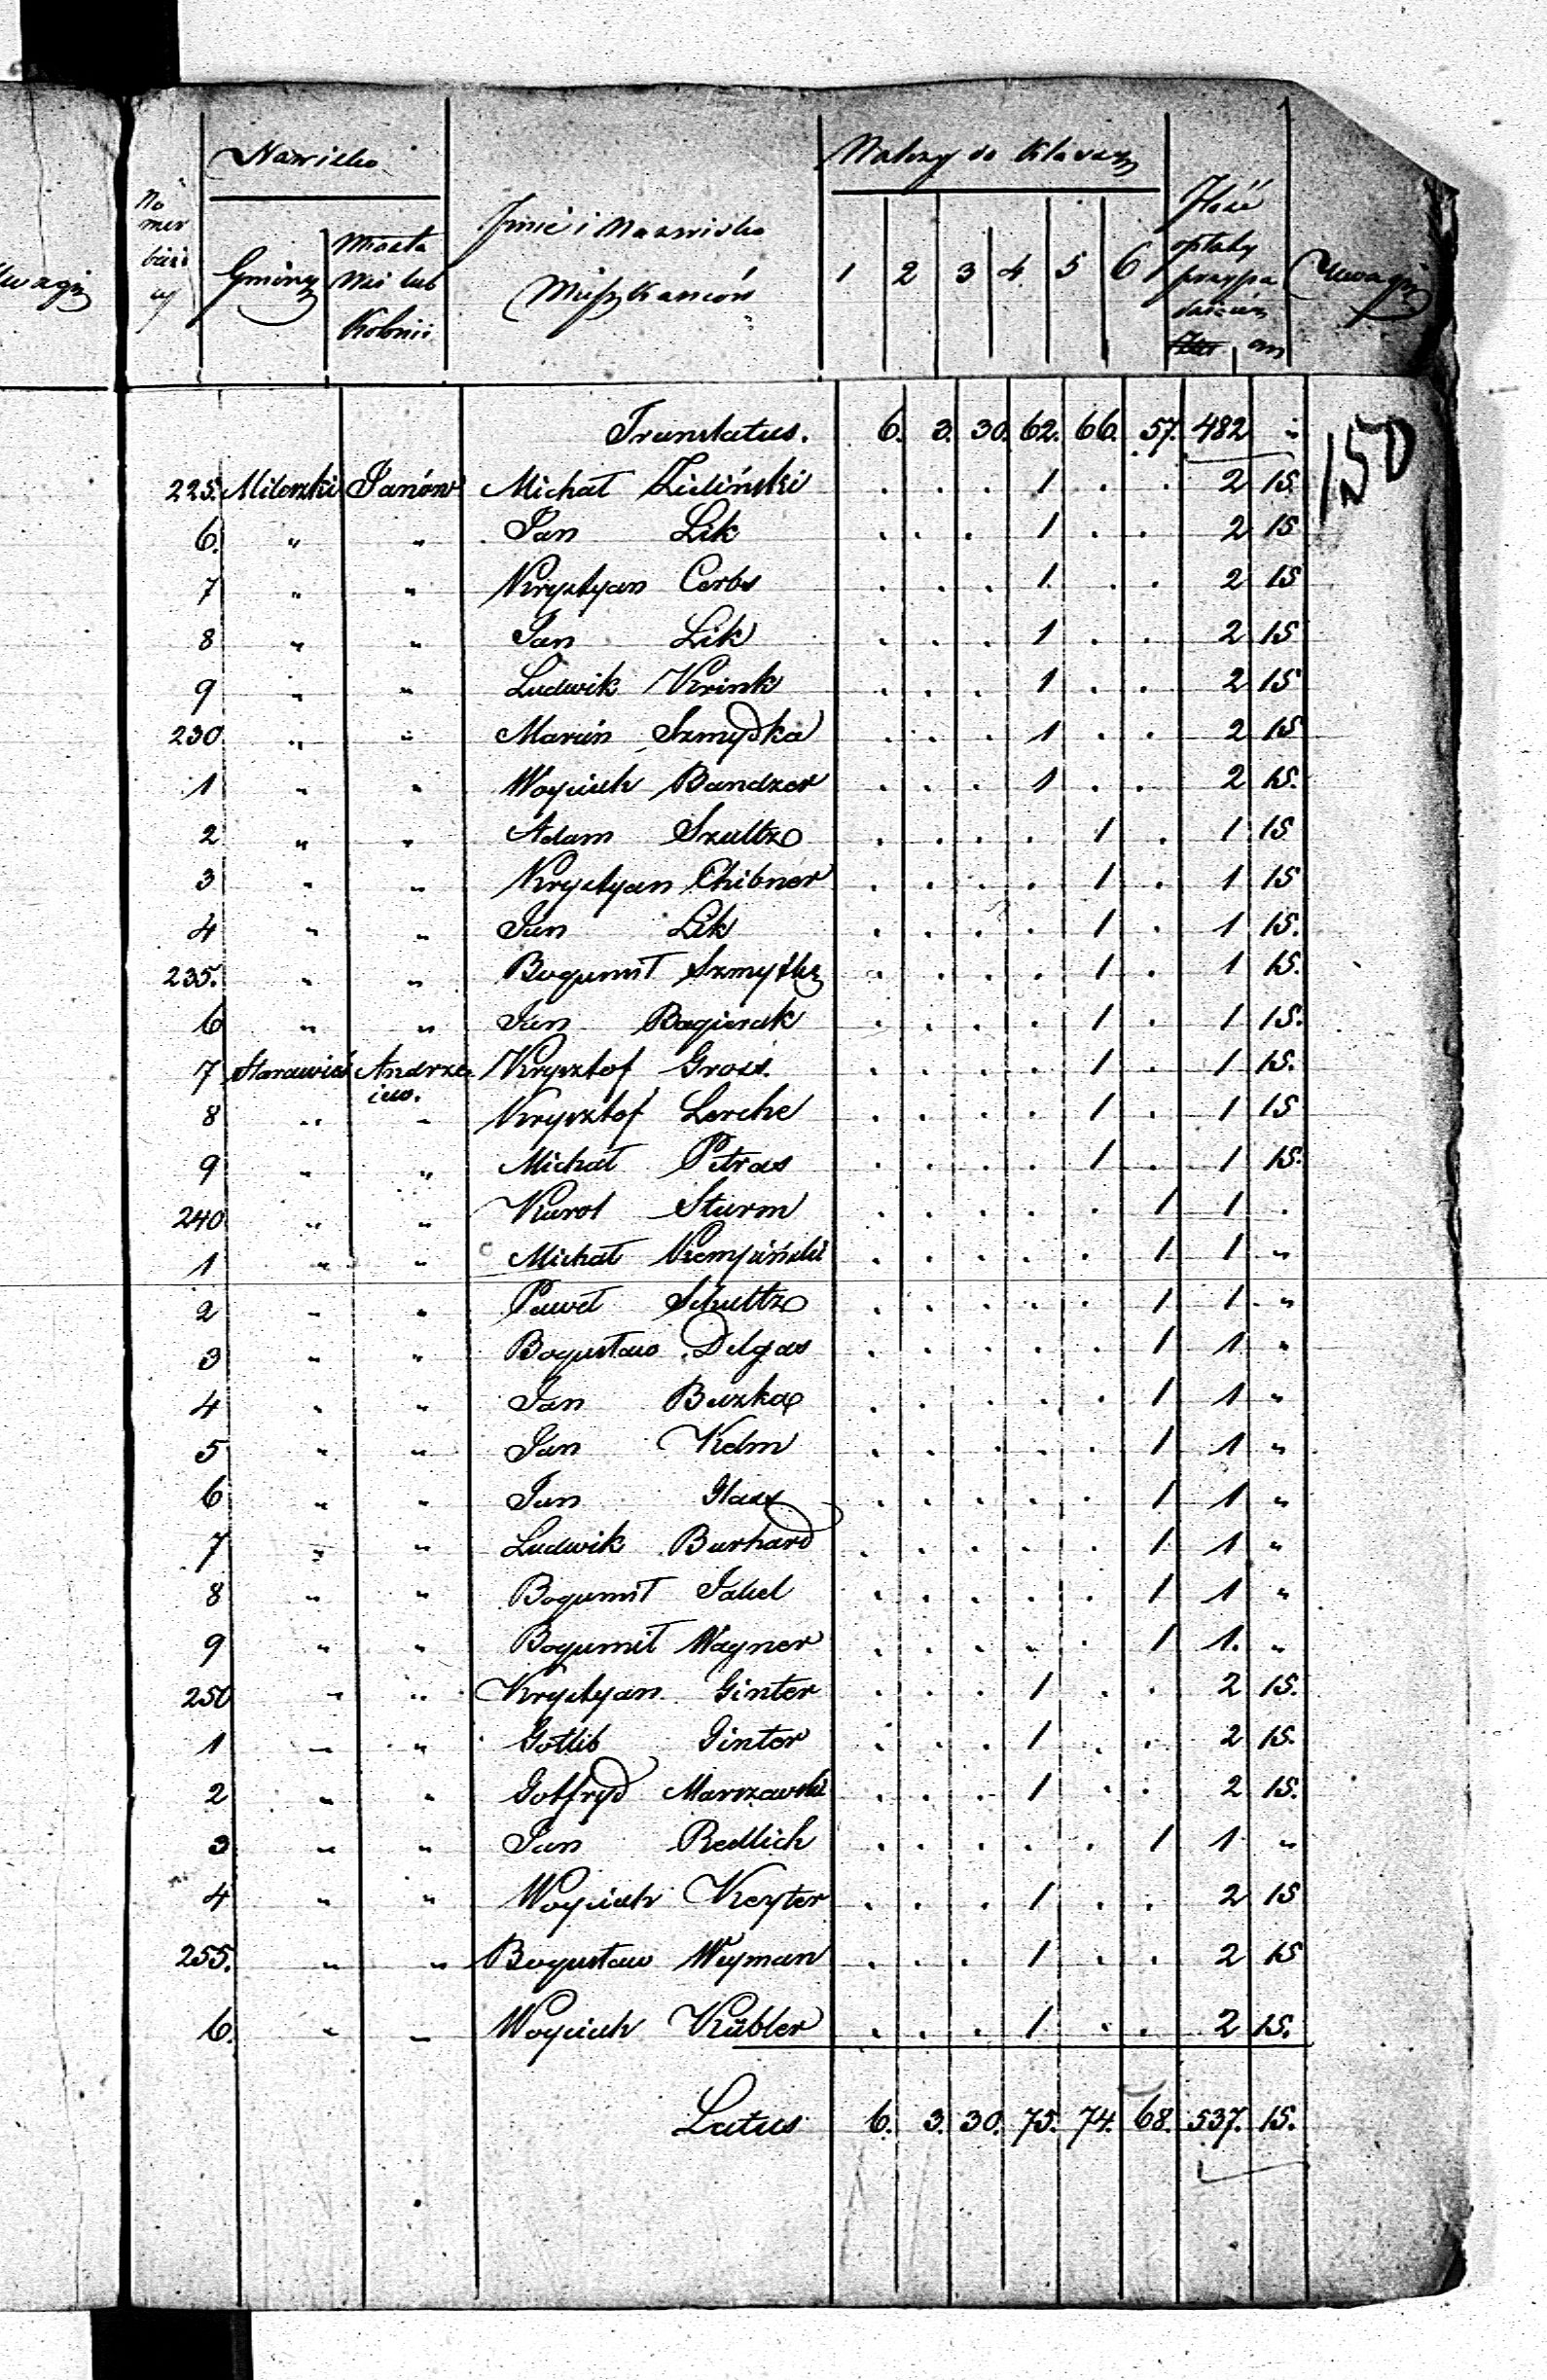 Uwagi
Nazwisko
Należy do Klassy
No mer bieżący
Gminy
Miasta Wsi lub Kolonii
Imie i Nazwisko Mieszkańców
1 2 3 4. 5 6
Ilość opłaty przypadaiącéy
Uwagi
150
Translatus. 6. 3. 30. 62. 66. 57. 482 "
225. Mileszki Janów Michał Zieliński . . . 1 . . 2 15
6. " " Jan Lik . . . 1 . . 2 15
7 " " Krystyan Cerbs . . . 1 . . 2 15
8 " " Jan Lik . . . 1 . . 2 15
9 " " Ludwik Krink . . . 1 . . 2 15
230 " " Marcin Szmydka . . . 1 . . 2 15
1 " " Woyciech Bandzer . . . 1 . . 2 15.
2 " " Adam Szultz . . . . 1 . 1 15
3 " " Krystyan Chibner . . . . 1 . 1 15
4 " " Jan Lik . . . . 1 . 1 15.
235. " " Bogumił . . . . 1 . 1 15.
6 " " Jan Bagieński . . . . 1 . 1 15.
7 Starawieś Andrzeiew. Krysztof Gross. . . . . 1 . 1 15.
8 " " Krysztof Lerche . . . . 1 . 1 15
9 " " Michał Petras . . . . 1 . 1 15.
240 " " Karol Sturm . . . . . 1 1 .
1 " " Michał Kempiński . . . . . 1 1 "
2 " " Paweł Schultz . . . . . 1 1 "
3 " " Bogusław Delgas . . . . . 1 1 "
4 " " Jan Buzka . . . . . 1 1 "
5 " " Jan Kelm . . . . . 1 1 "
6 " " Jan Glass . . . . . 1 1 "
7 " " Ludwik Burhard . . . . . 1 1 "
8 " " Bogumił Jakel . . . . . 1 1 "
9 " " Bogumił Wagner . . . . . 1 1. "
250 " " Krystyan Ginter . . . 1 . . 2 15.
1 " " Gotlib Ginter . . . 1 . . 2 15.
2 " " Gotfryd Marszawski . . . 1 . . 2 15.
3 " " Jan Redlich . . . . . 1 1 "
4 " " Woyciech Keyter . . . 1 . . 2 15
255. " " Bogusław Weyman . . . 1 . . 2 15
6. " " Woyciech Kübler . . . 1 . . 2 15.
Latus 6. 3. 30. 75. 74. 68. 537. 15.